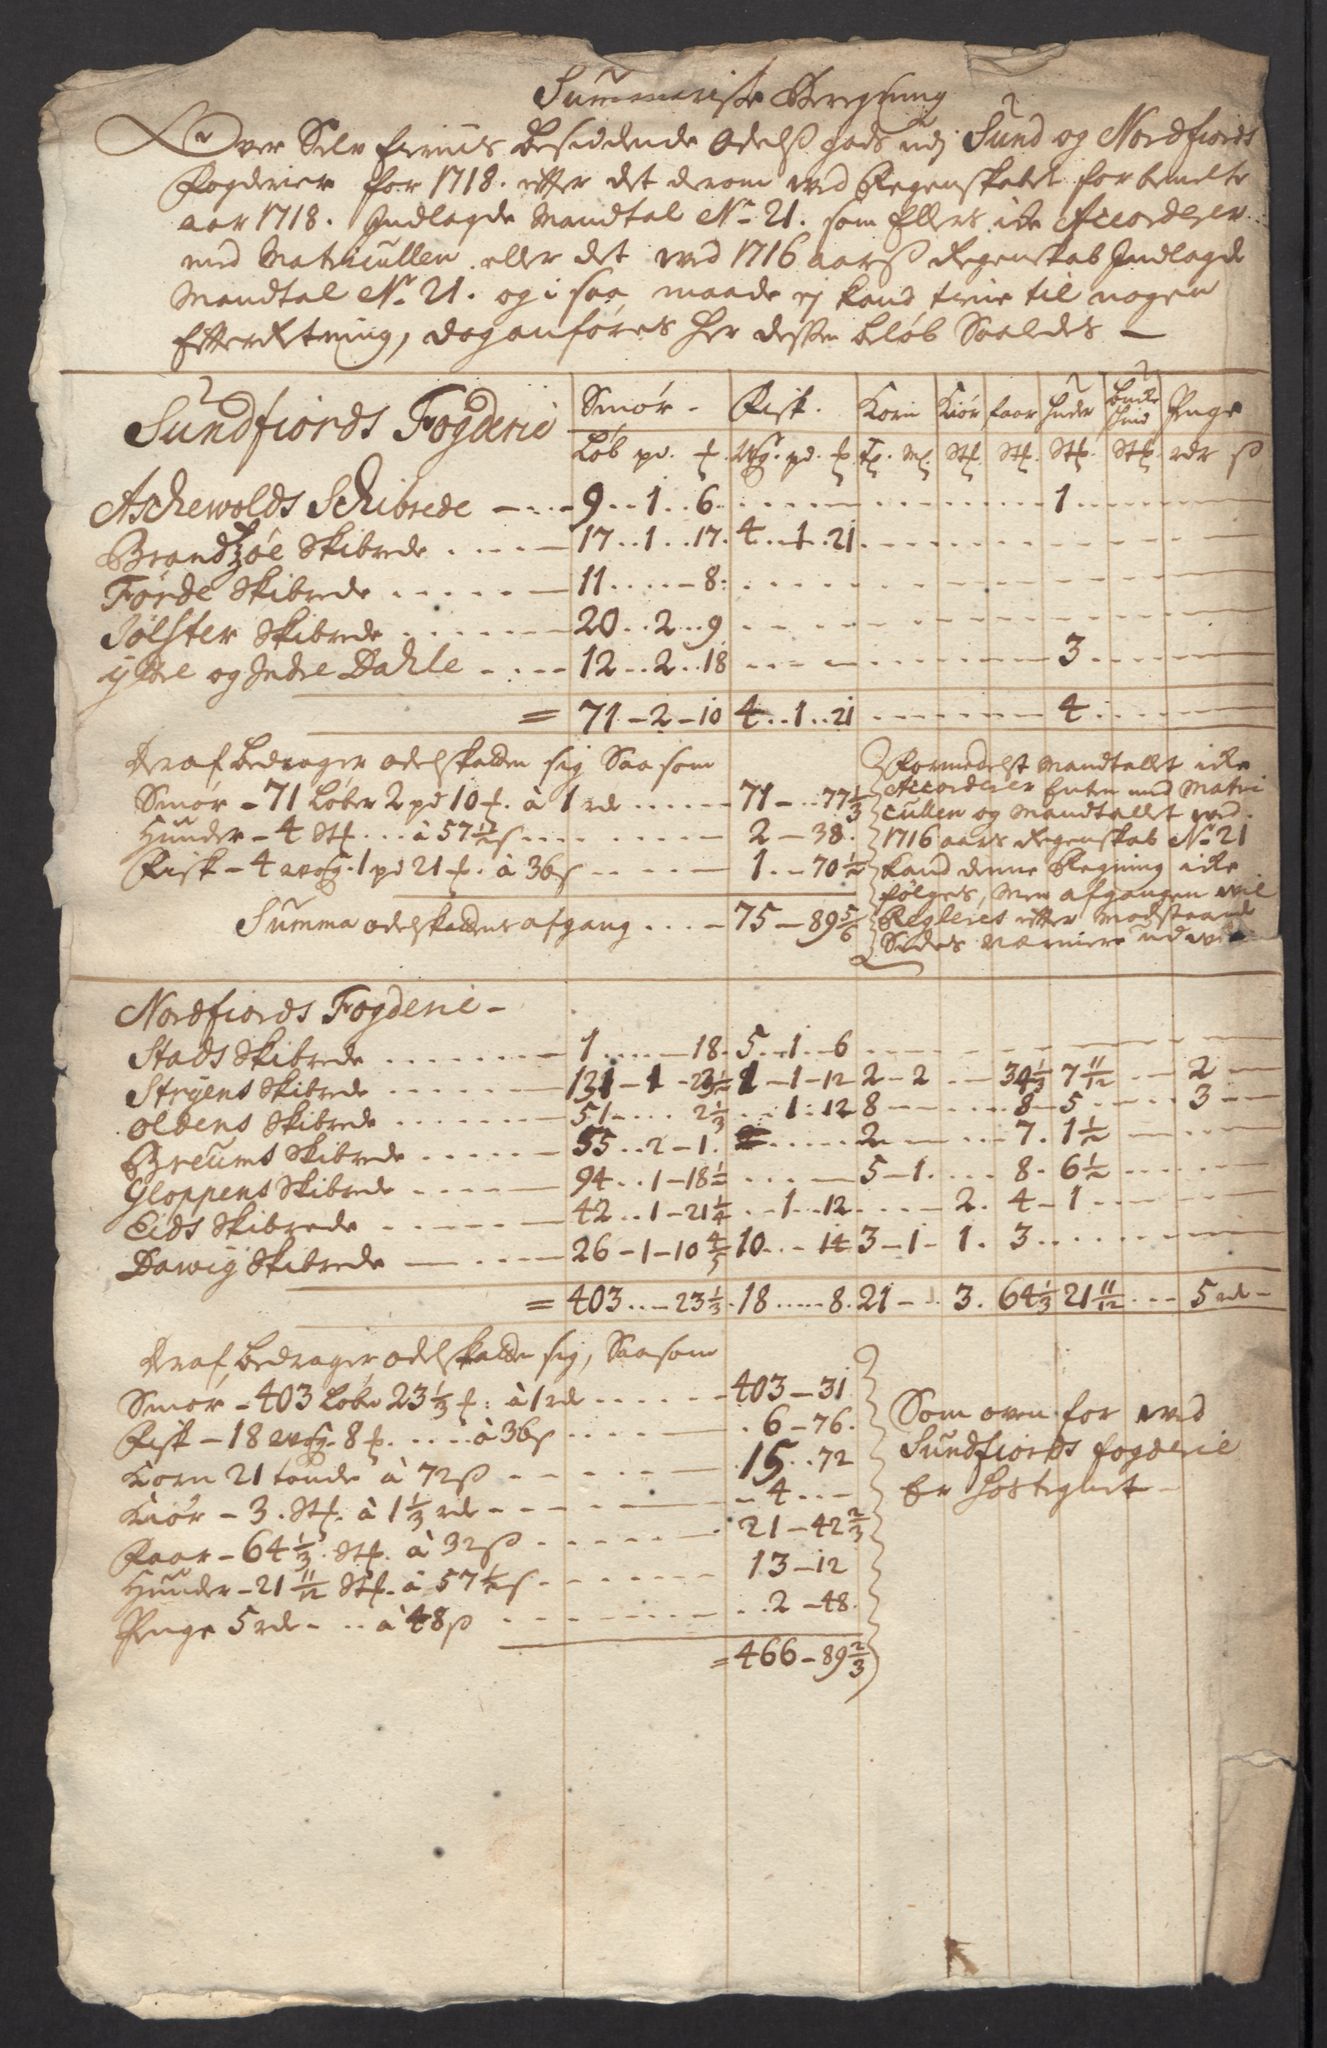 Summarische Beregning
Over Selv Eiernis Besiddende Odelss gods udj Sund og Nordfiords
Fogderier for 1718. efter det derom ved Regenskabet for bemelte
aar 1718. Indlagde Mandtal No 21. som Ellers icke Accorderer
med Matricullen eller det ved 1716 aarss Regenskab Indlagde
Mandtal No 21. og i saa maade ej kand tiene til nogen
Efterretning, dog anføres her dessen beløb Saaledes —
Sundfiords Fogderie Smør - Fisk. Korn Kiør faar huder bucke skind Penge
Løb pd. ℔. Wog. pd. ℔ Tp. Ml. Stk. Stk. Stk. Stk. rdr ß
Aschewolds Schibrede 9 .. 1 .. 6 1
Brandzøe Skibrede 17 .. 1 .. 17. 4 .. 1 .. 21
Førde Skibrede 11 .... 8.
Jølster Skibrede 20 .. 2 .. 9
ydre og Indre Dahle 12 .. 2 .. 18 3
= 71 - 2 - 10 4 .. 1 .. 21 4
Deraf bedrager odelskatten sig Saasom
Smør - 71 Løber 2 pd 10 ℔. à 1 rd 71 - 77 1/3
Huuder - 4 Stk. à 57 1/2 s 2 - 38.
Fisk - 4 wog. 1 pd 21 ℔. à 36 s 1 - 70 1/2
Summa odelskattens afgang 75 - 89 5/6
Formedelst Mandtallet icke
Accorderer Enten med Matri
cullen og Mandtallet ved
1716 aars Regenskab No 21
kand denne Regning icke
følges, men afgangen vil
Regleres efter modstaaende
Sides
Nordfiords Fogderie -
Stads Skibrede 1 .... 18. 5 .. 1 .. 6
Stryens Skibrede 131 - 1 - 23 1/2 1 - 1 - 12 2 - 2 34 1/3 7 11/12 2
Oldens Skibrede 51 .... 2 1/3 1 . 12 8 8 - 5 3
Breums Skibrede 55 .. 2 - 1. 2 7. 1 1/2
Gloppens Skibrede 94 .. 1 - 18 1/2 5 - 1 8 - 6 1/2
Eids Skibrede 42 .. 1 - 21 1/4 1 .. 12 2. 4 - 1
Dawig Skibrede 26 - 1 - 10 4/5 10 ... 14 3 - 1 - 1. 3
= 403 ... 23 1/3 18 .... 8. 21 3. 64 1/3 21 11/12 5 rd -
Deraf bedrager odelskatten sig, Saasom
Smør - 403 Løber 23 1/3 ℔: à 1 rd 403 - 31
Fisk - 18 wog. 8 ℔. à 36 s 6 - 76.
Korn 21 tønde à 72 ß 15 .. 72
Kiør - 3. Stk. à 1 1/3 rd 4
Faar - 64 1/3. Stk. à 32 ß 21 - 42 2/3
Huuder - 21 11/12 Stk. à 57 1/2 s 13 - 12
Penge 5 rd - .. à 48 ß 2 - 48.
= 466 - 89 2/3
Som oven for ved
Sundfiords fogderie
Er